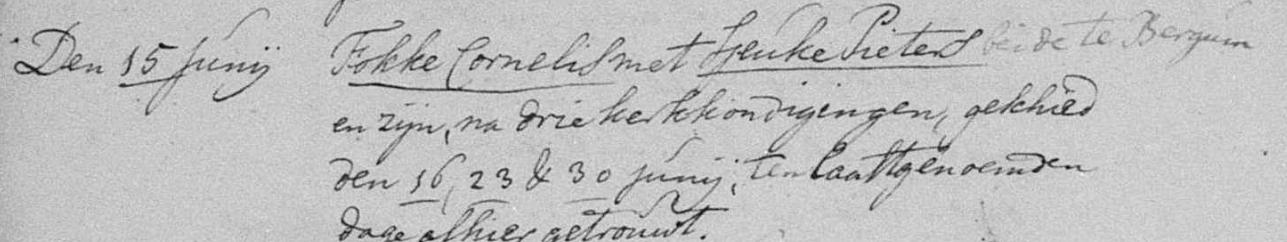 Den 15 Junij Fokke Cornelis met Tjeuke Pieters beide te Bergum
en zijn, na drie kerkkondigingen, geschied
den 16, 23 & 30 Junij, ten laatstgenoemden
dage alhier getrouwt.